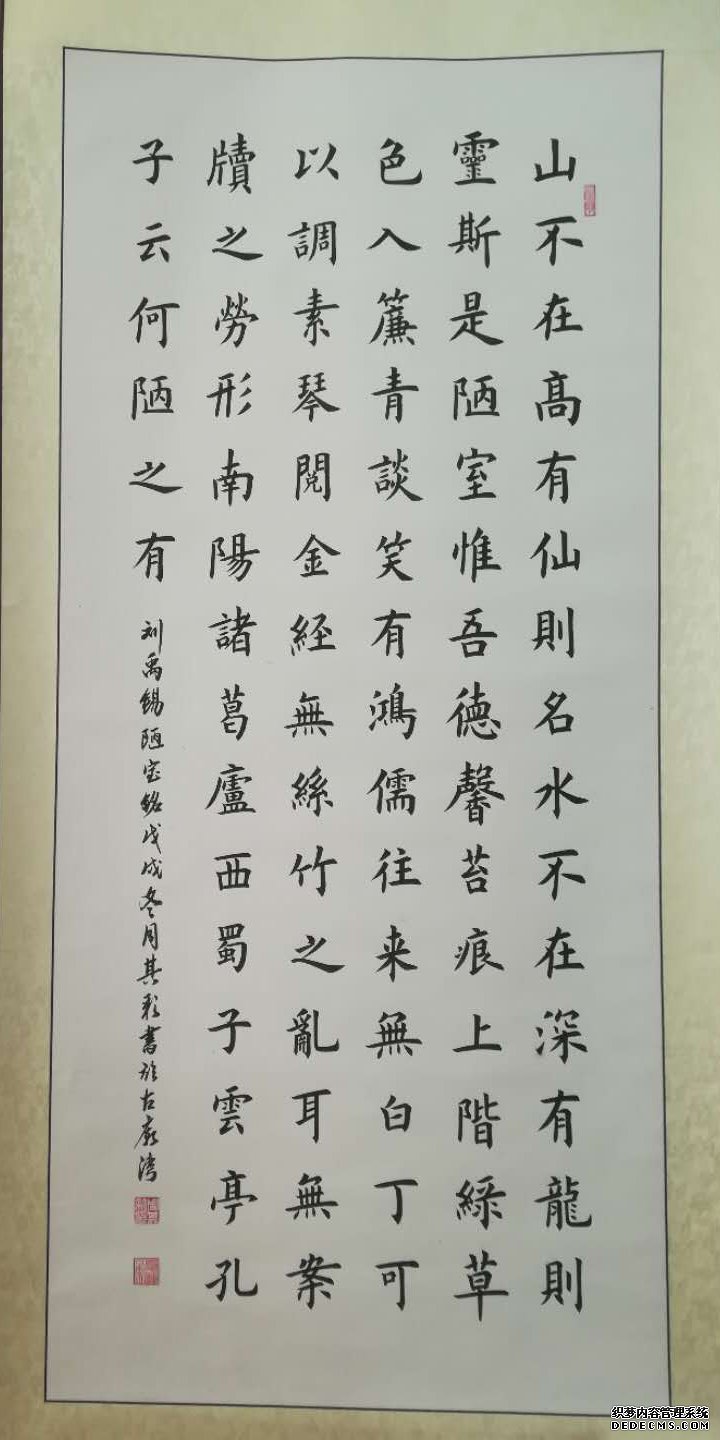 山不在高有仙則名水不在深有龍則
靈斯是陋室惟吾德馨苔痕上階綠草
色入簾青談笑有鴻儒往来無白丁可
以調素琴閱金経無絲竹之亂耳無案
牘之勞形南陽諸葛廬西蜀子雲亭孔
子云何陋之有
刘禹錫陋室銘戊戌冬月其彩書於古廟灣
织梦内容管理系统
DEDECMS.COM